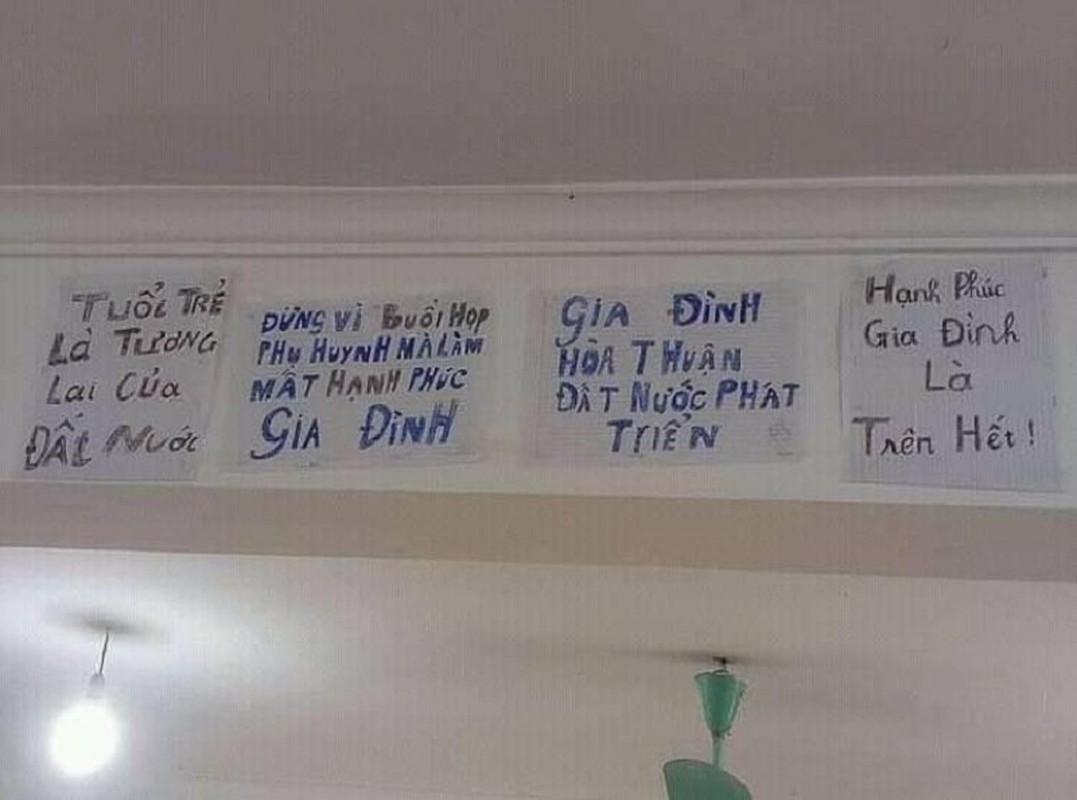 TUỔI TRẺ
Là TƯƠNG
Lai CỦA
ĐẤT NƯỚC
ĐỪNG VÌ BUỔI HỌP
PHỤ HUYNH MÀ LÀM
MẤT HẠNH PHÚC
GIA ĐÌNH
GIA ĐÌNH
HÒA THUẬN
ĐẤT NƯỚC PHÁT
TRIỂN
Hạnh Phúc
Gia Đình
Là
Trên Hết!